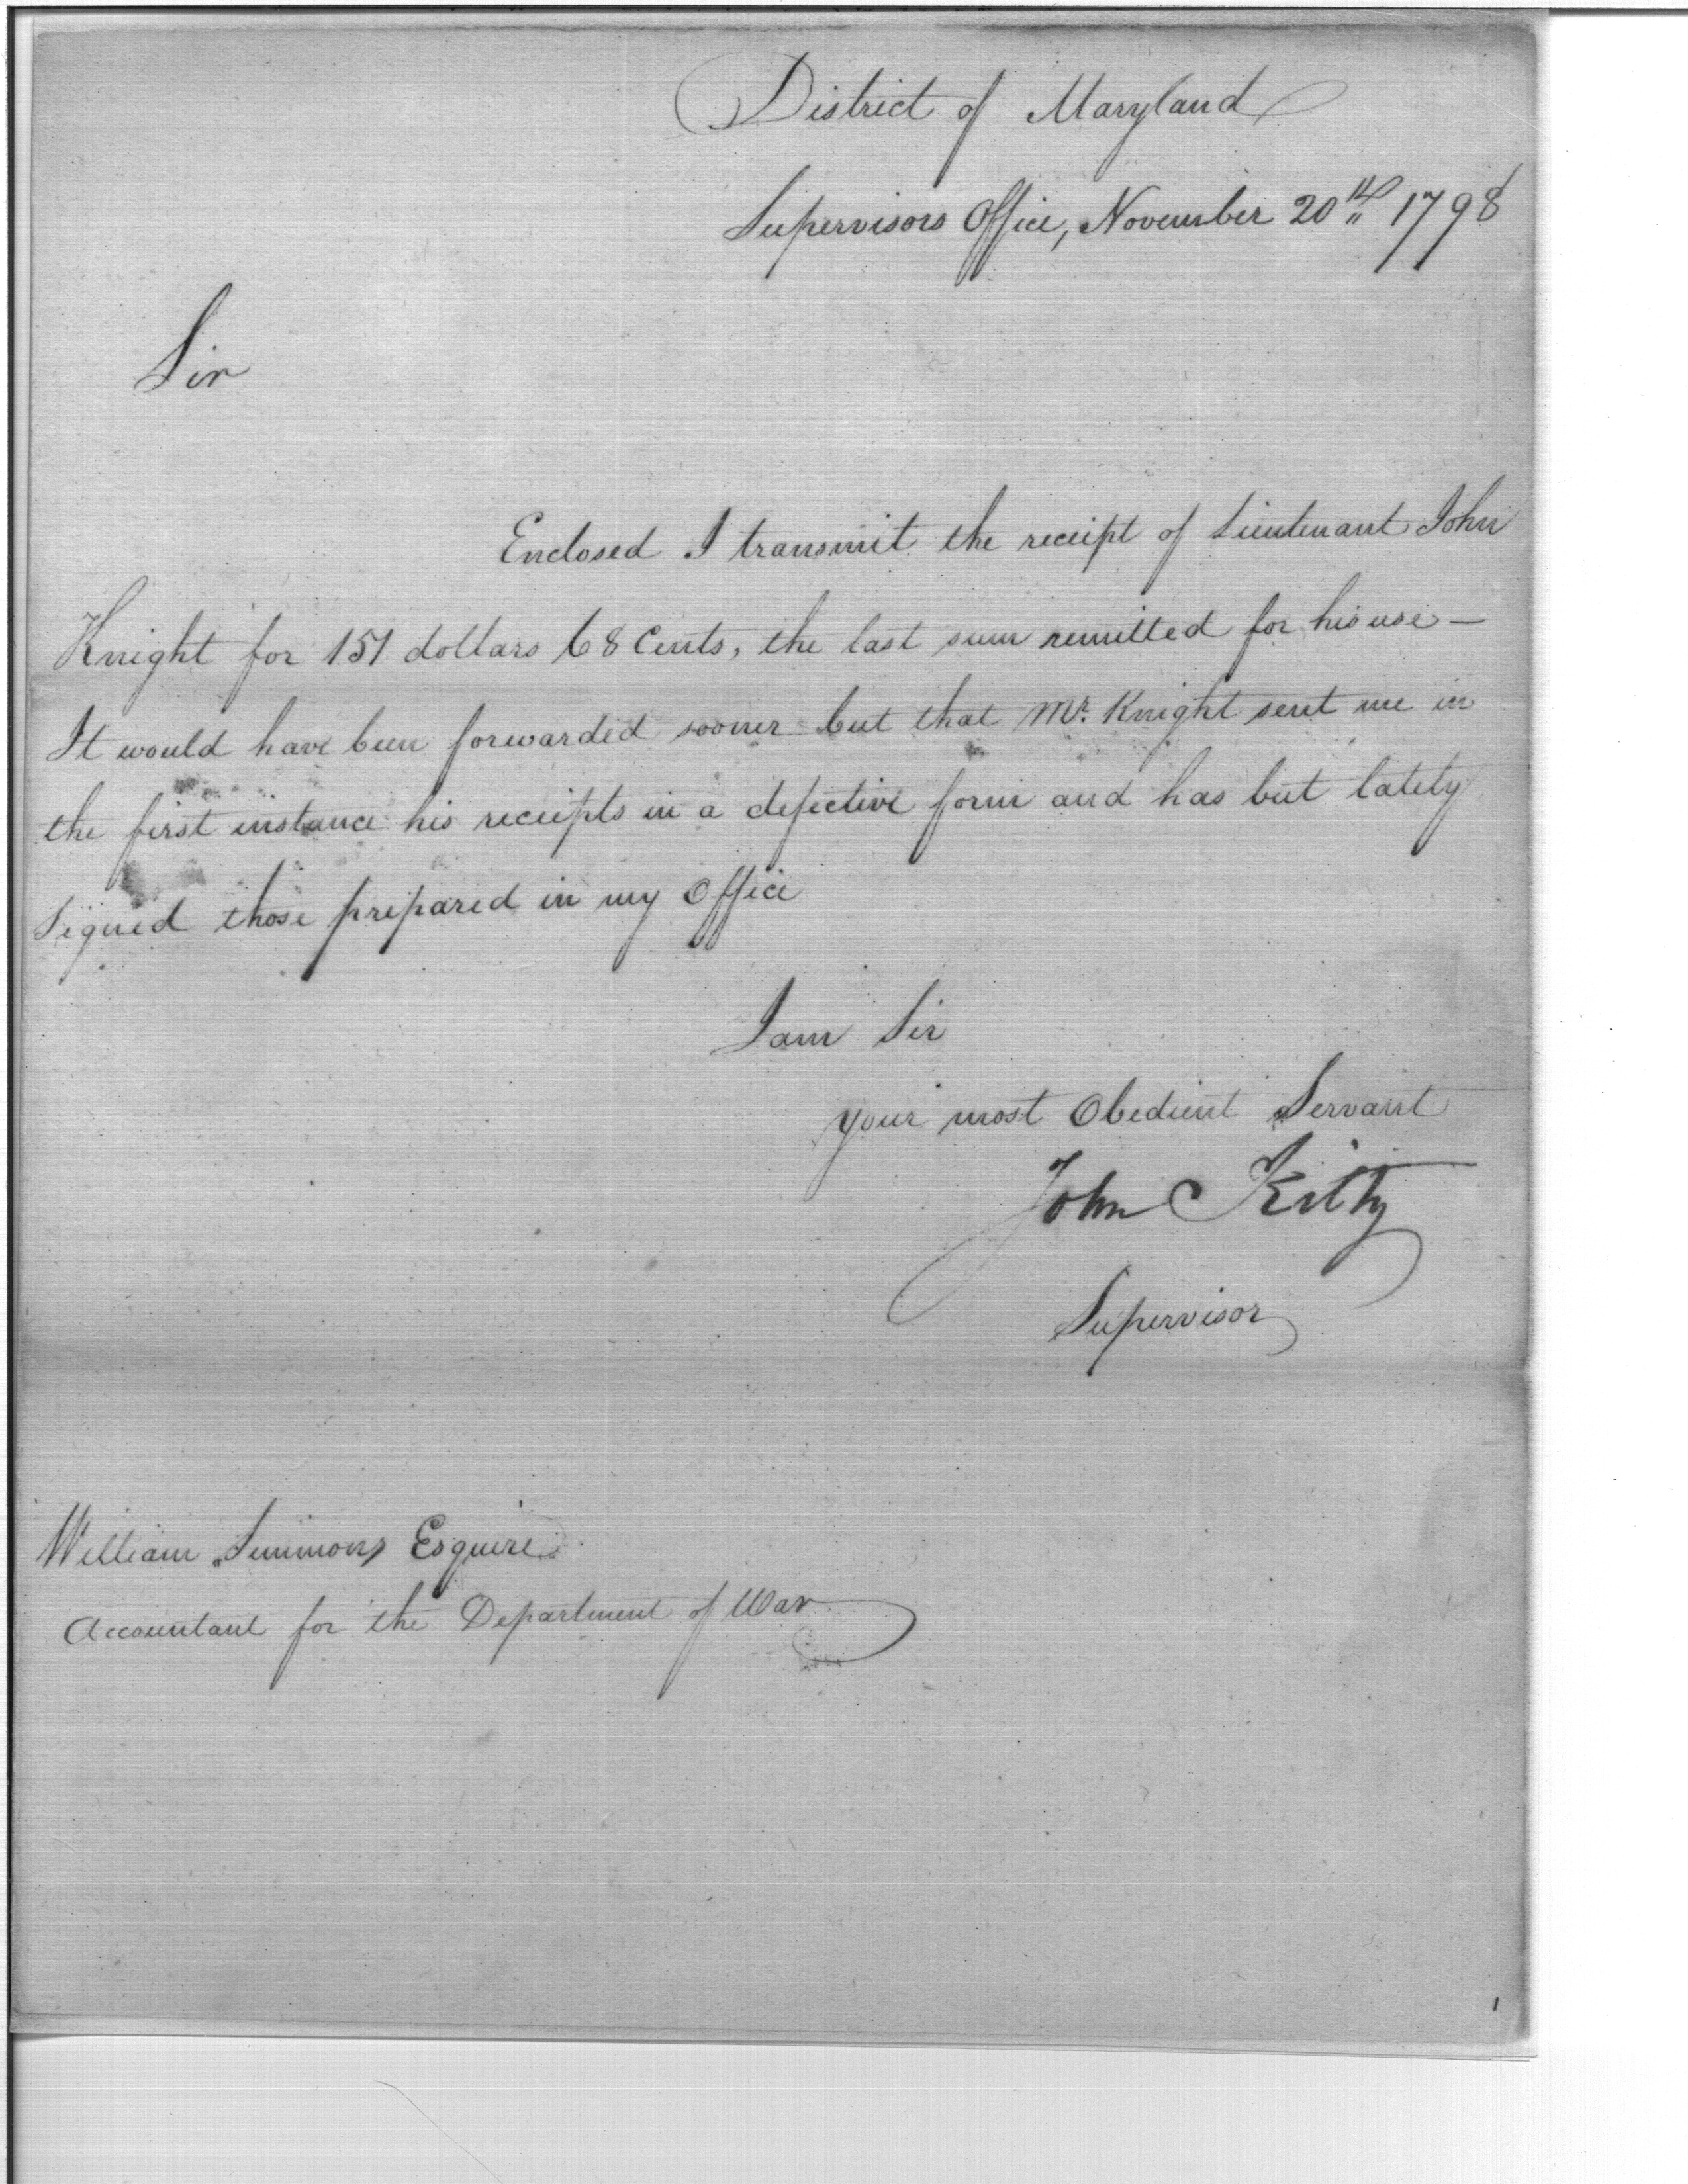 District of Maryland
Supervisors Office, November 20th 1798
Sir
Enclosed I transmit the receipt of Lieutenant John
Knight for 151 dollars 68 Cents, the last sum remitted for his use —
It would have been forwarded sooner but that Mr. Knight sent me in
the first instance his receipts in a defective form and has but lately
Signed those prepared in my Office
I am Sir
your most Obedient Servant
John Kilty
Supervisor
William Simmons Esquire
Accountant for the Department of War